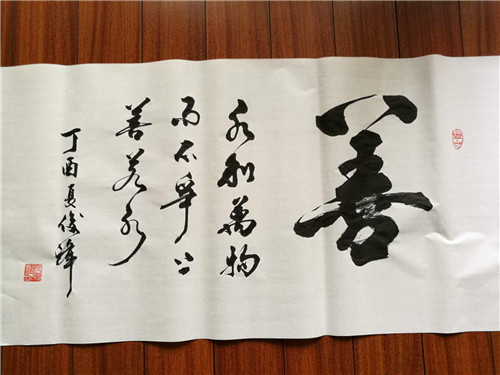 善
水利萬物
而不争上
善若水
丁酉夏俊